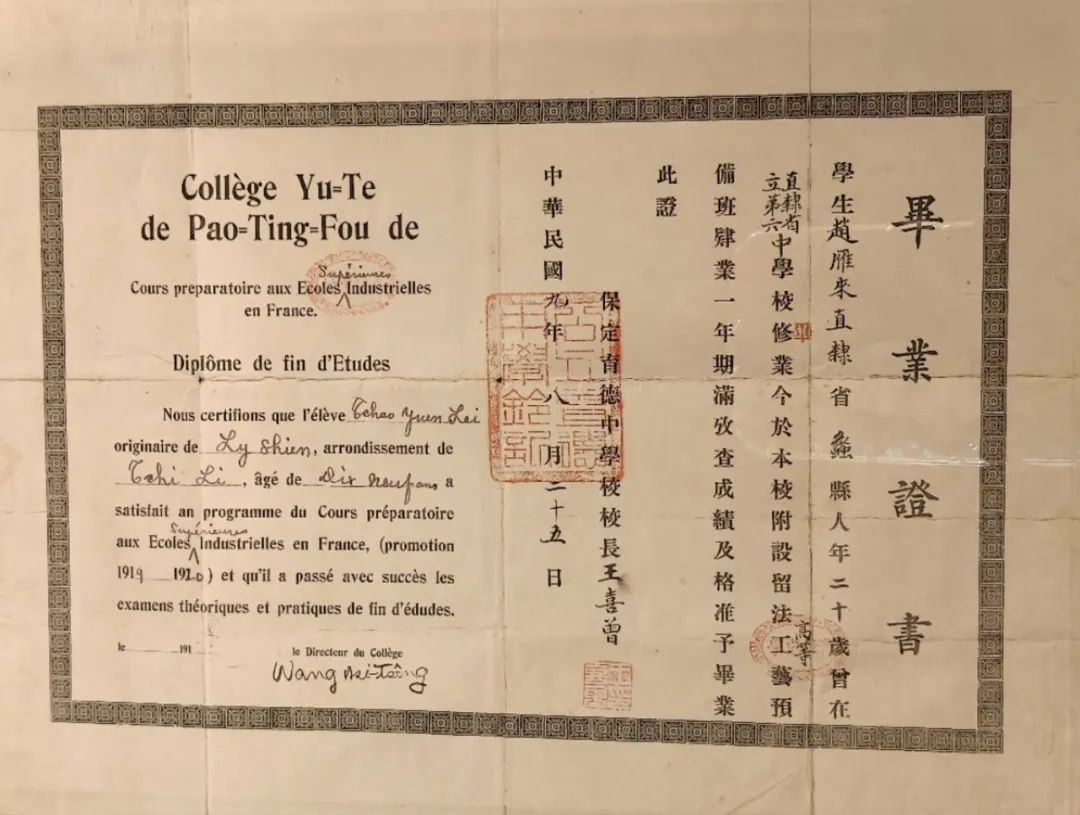 畢業證書
學生趙雁來直隸省蠡縣人年二十歲曾在
直隸省立第六中學校修業今於本校附設留法高等工藝預
備班肄業一年期滿攷查成績及格准予畢業
此證
保定育德中學校校長王喜曾
中華民國九年八月二十五日
Collège Yu=Te
de Pao=Ting=Fou de
Supérieures
Cours preparatoire aux Ecoles Industrielles
en France.
Diplôme de fin d'Etudes
Nous certifions que l'élève Tchao Yuen Lai
originaire de Ly Shien, arrondissement de
Tchi Li, âgé de Dix neuf ans a
satisfait an programme du Cours préparatoire
Supérieures
aux Ecoles Industrielles en France, (promotion
1919 1920) et qu'il a passé avec succès les
examens théoriques et pratiques de fin d'édudes.
le 191
le Directeur du Collège
Wang Hsi-Tsêng